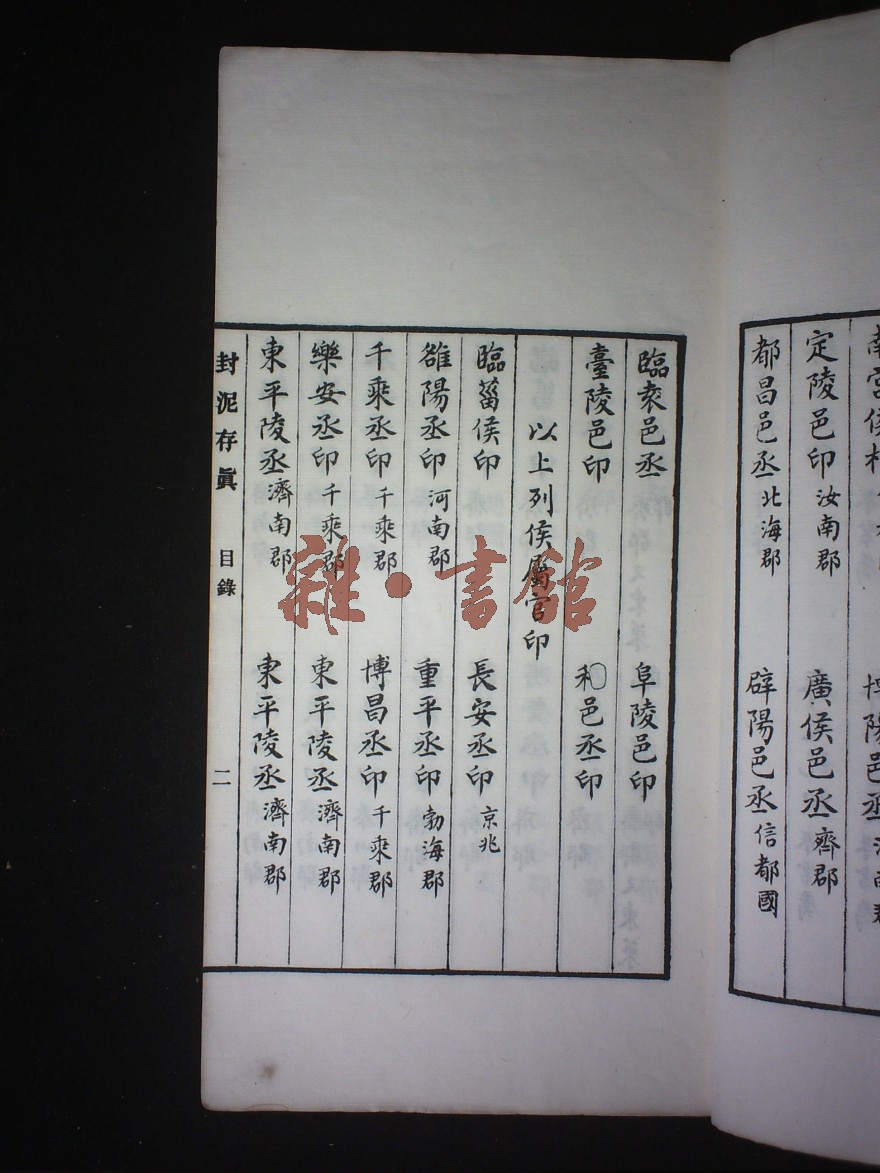 定陵邑印 汝南郡 廣侯邑丞 齊郡
都昌邑丞 北海郡 辟陽邑丞 信都國
臨袁邑丞 阜陵邑印
臺陵邑印 和〇邑丞印
以上列侯屬官印
臨菑侯印 長安丞印 京兆
雒陽丞印 河南郡 重平丞印 勃海郡
千乘丞印 千乘郡 博昌丞印 千乘郡
樂安丞印 千乘郡 東平陵丞 濟南郡
東平陵丞 濟南郡 東平陵丞 濟南郡
封泥存眞 目錄 二
雜·書館